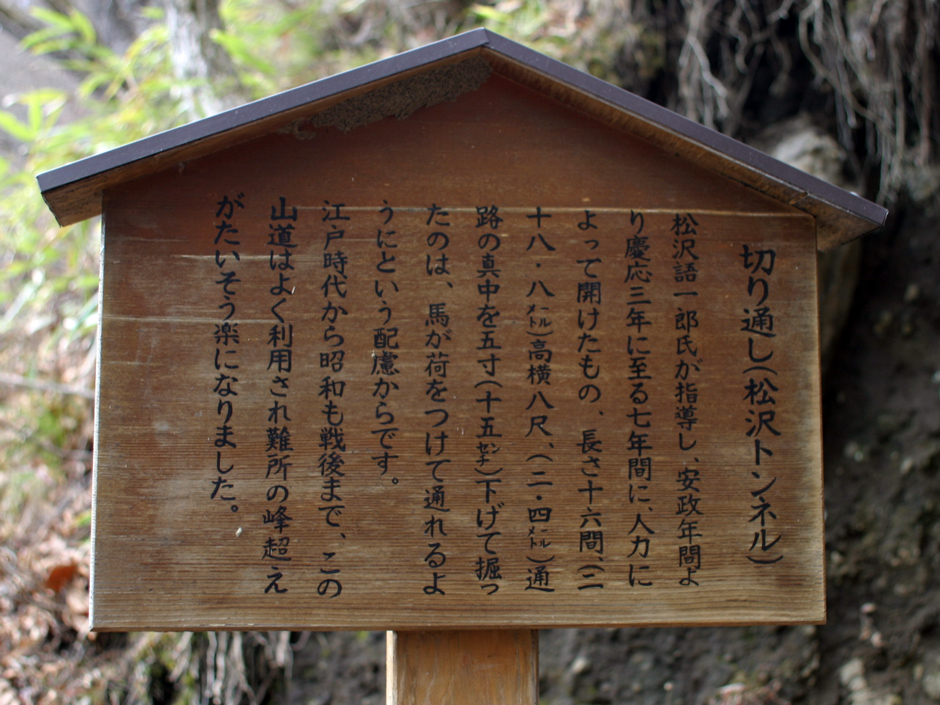 切り通し(松沢トンネル)
松沢語一郎氏が指導し、安政年間よ
り慶応三年に至る七年間に、人力に
よって開けたもの、長さ十六間、(二
十八・八メートル)高横八尺、(二・四メートル)通
路の真中を五寸(十五センチ)下げて掘っ
たのは、馬が荷をつけて通れるよ
うにという配慮からです。
江戸時代から昭和も戦後まで、この
山道はよく利用され難所の峰超え
がたいそう楽になりました。